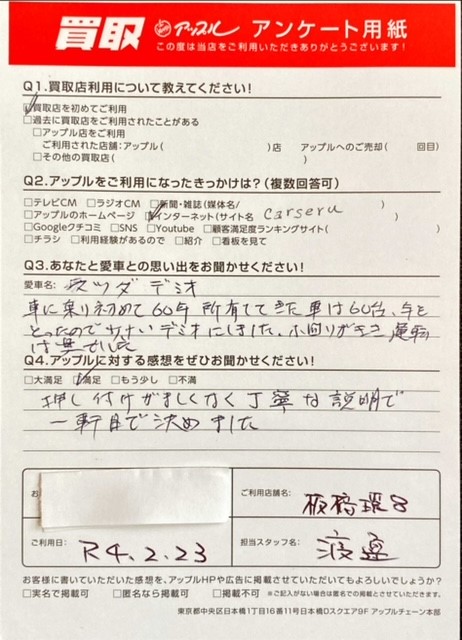 買取 アップル アンケート用紙
この度は当店をご利用いただきありがとうございます!
Q1.買取店利用について教えてください!
□買取店を初めてご利用
□過去に買取店をご利用されたことがある
□アップル店をご利用
ご利用された店舗:アップル( )店 アップルへのご売却( 回目)
□その他の買取店( )
Q2.アップルをご利用になったきっかけは?(複数回答可)
□テレビCM □ラジオCM □新聞・雑誌(媒体名/ )
□アップルのホームページ □インターネット(サイト名 carseru )
□Googleクチコミ □SNS □Youtube □顧客満足度ランキングサイト( )
□チラシ □利用経験があるので □紹介 □看板を見て
Q3.あなたと愛車との思い出をお聞かせください!
愛車名: マツダ デミオ
車に乗り初めて60年 所有してきた車は60台、年を
とったので小さいデミオにしました、小回りがキコ 運転
は楽でした
Q4.アップルに対する感想をぜひお聞かせください!
□大満足 □満足 □もう少し □不満
押し付けがましくなく丁寧な説明で
一軒目で決めました
お
ご利用店舗名: 板橋環8
ご利用日: R4.2.23
担当スタッフ名: 渡邉
お客様に書いていただいた感想を、アップルHPや広告に掲載させていただいてもよろしいでしょうか?
□実名で掲載可 □匿名なら掲載可 □掲載不可 ※ご記入がない場合は匿名での掲載とさせていただきます。
東京都中央区日本橋1丁目16番11号日本橋Dスクエア9F アップルチェーン本部